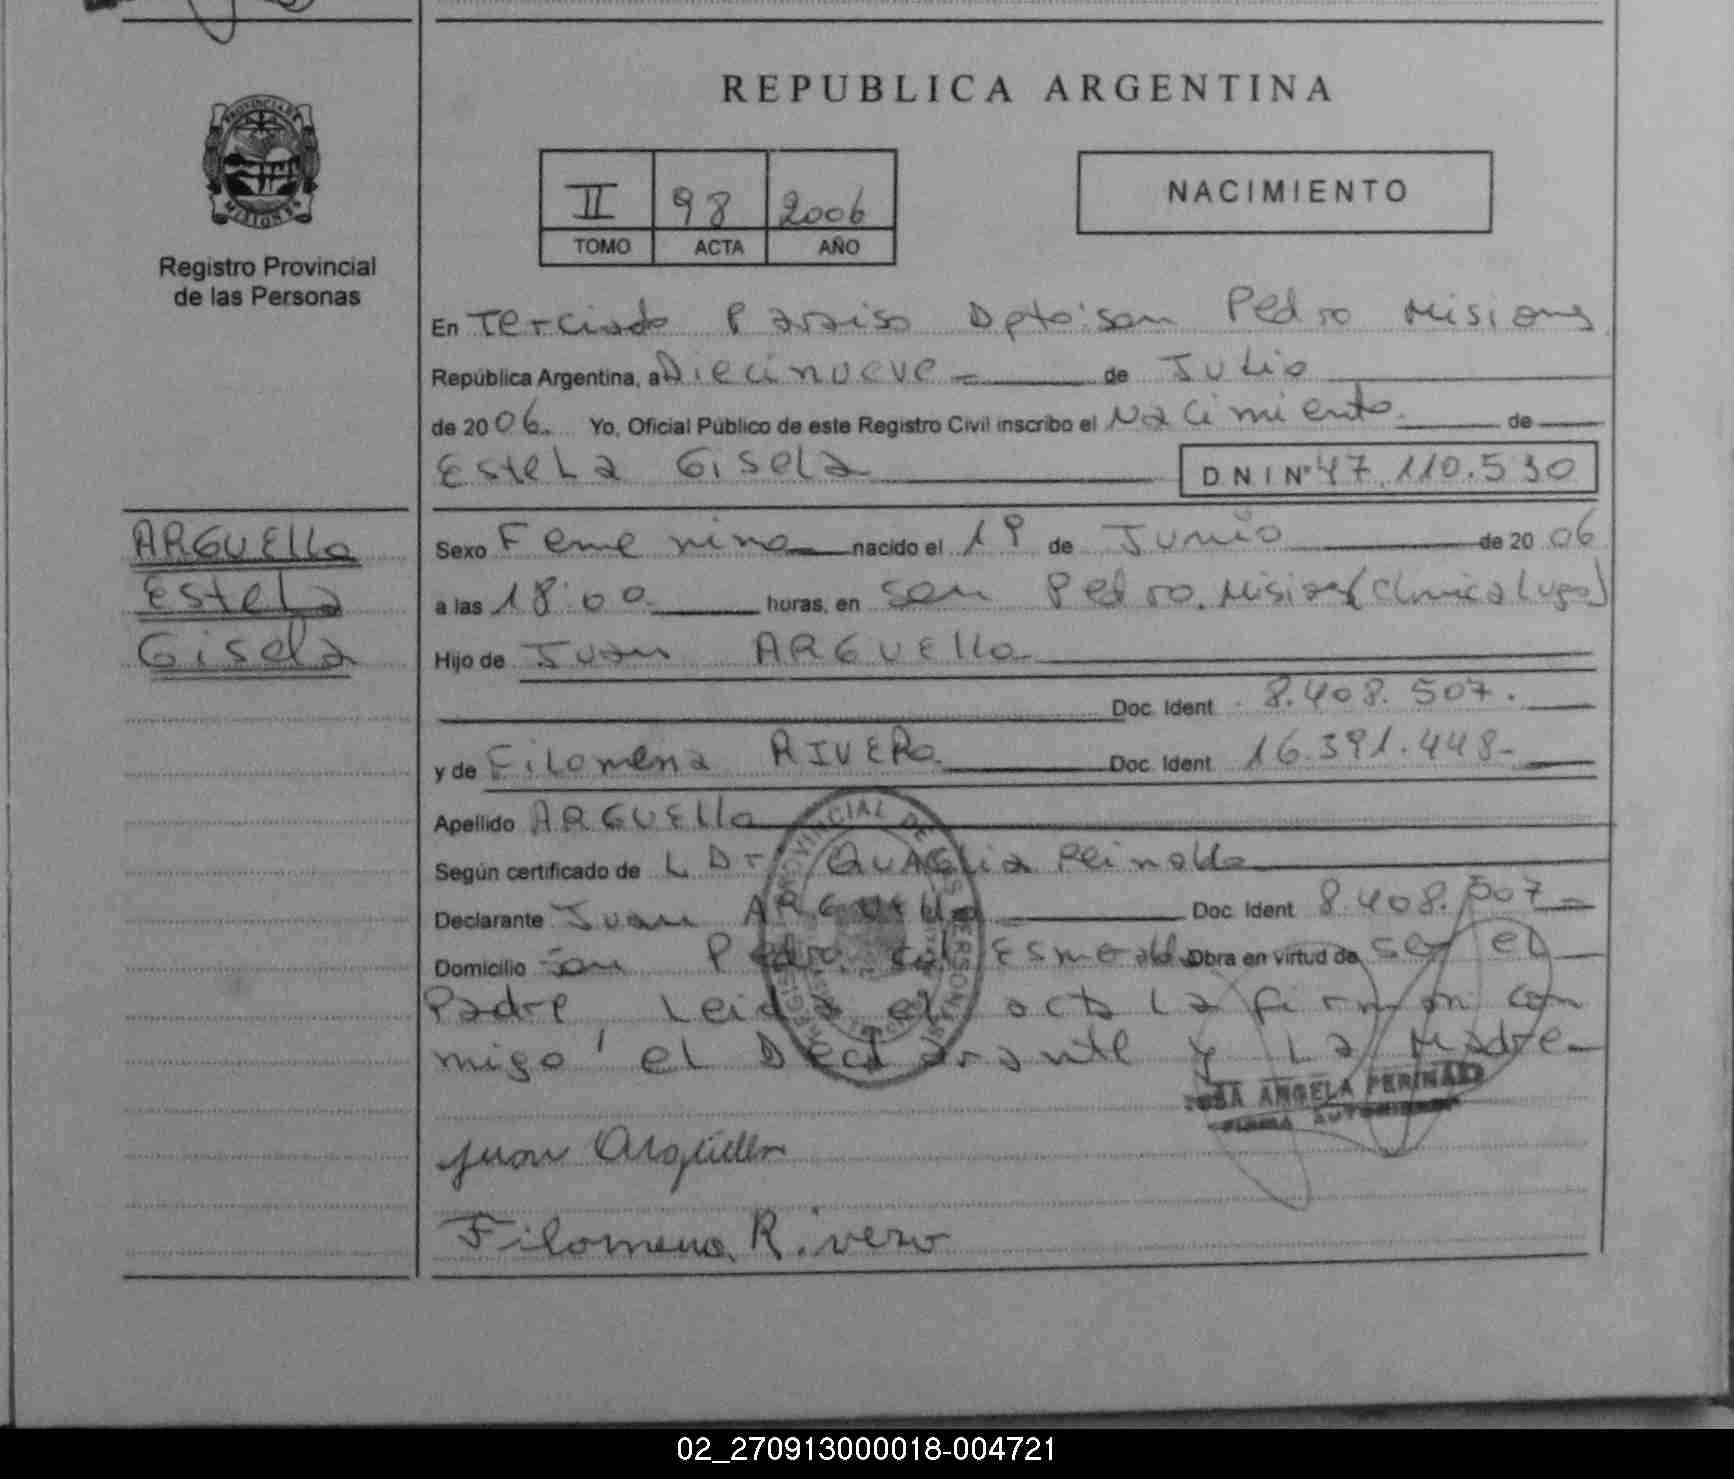 REPUBLICA ARGENTINA
PROVINCIA DE
MISIONES
Registro Provincial
de las Personas
II 98 2006
TOMO ACTA AÑO
NACIMIENTO
En Terciado Paraiso Dpto: san Pedro Misiones
República Argentina, a Diecinueve - de Julio
de 2006. Yo, Oficial Público de este Registro Civil inscribo el Nacimiento de
Estela Gisela D N I Nº 47.110.530
ARGUELLo
Estela
Gisela
Sexo Femenino nacido el 19 de Junio de 2006
a las 18:00 horas, en san Pedro. Misiones (Clinica Lugo)
Hijo de Juan ARGUELLo
Doc. Ident. 8.408.507.
y de Filomena RIVERo. Doc. Ident. 16.391.448-
Apellido ARGUELLo
Según certificado de L Dr. QUAGLia Reinaldo
Declarante Juan ARGUELLo Doc. Ident. 8.408.507-
Domicilio san Pedro. col. Esmeralda Obra en virtud de ser el
Padre Leida el acta La firman con
migo el Declarante y La Madre-
ANGELA
Juan Argüello
Filomena Rivero
02_270913000018-004721